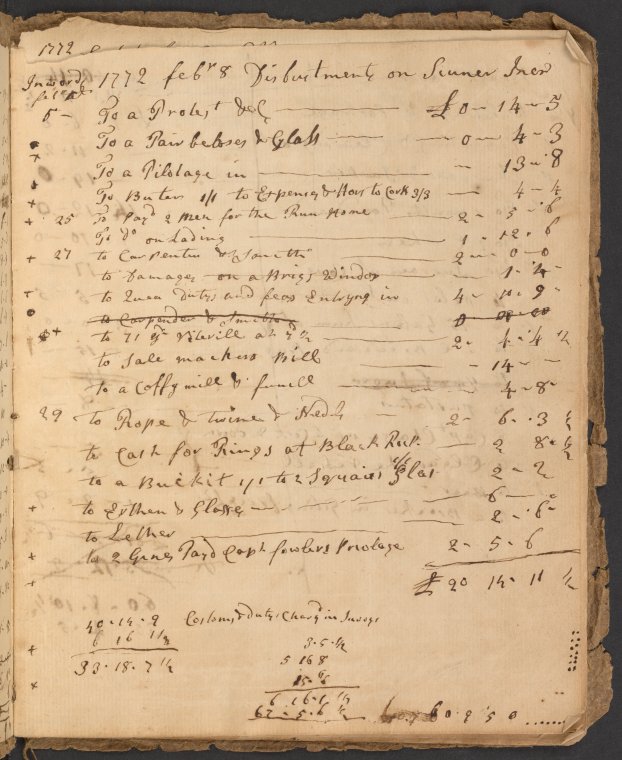 1772
Inword 1772 febr 8 Disbustments on Scuner
5 - To a Protest &C £ 0 - 14 - 5
To a Pair beloses & Glass 0 - 4 - 3
To a Pilotage in - 13 - 8
To Buter 1/1 to Expenses & Hors to Cork 3/3 - 4 - 4
+ 25 To Payd 2 Men for the Run Home 2 - 5 - 6
To do on Lading 1 - 12 - 6
+ 27 to Carpenter & 2 - 0 - 0
to Damages on a Brigs Window - 1 - 4 -
to Dutys and fees Entryng in 4 - 10 - 9 -
to Carpender &
to 71 yd at 7d ½ 2 - 4 - 4 ½
to Sale makers Bill - 14 -
to a Coffy mill & funell - 4 - 8 -
29 to Rope & twine & Nedls 2 - 6 - 3 ½
to Cash for Rings at Black Rick 2 8 - ½
to a Buckit 1/1 to 2 Squaires Glas 2 - 2
to Erthen & Glasse 6
to Lether 2 - 6 -
+ to 2 Payd Capt fowlers 2 - 5 - 6
£ 20 14 - 11 ½
40 - 14 - 9 Customs & dutys Chargd in
6 16 1½ 3 - 5 - ½
33 - 18 - 7 ½ 5 16 8
15 - 6
6 - 16 - 1 ½
67 - 5 - 6 ½ 60 - 9 - 5 0